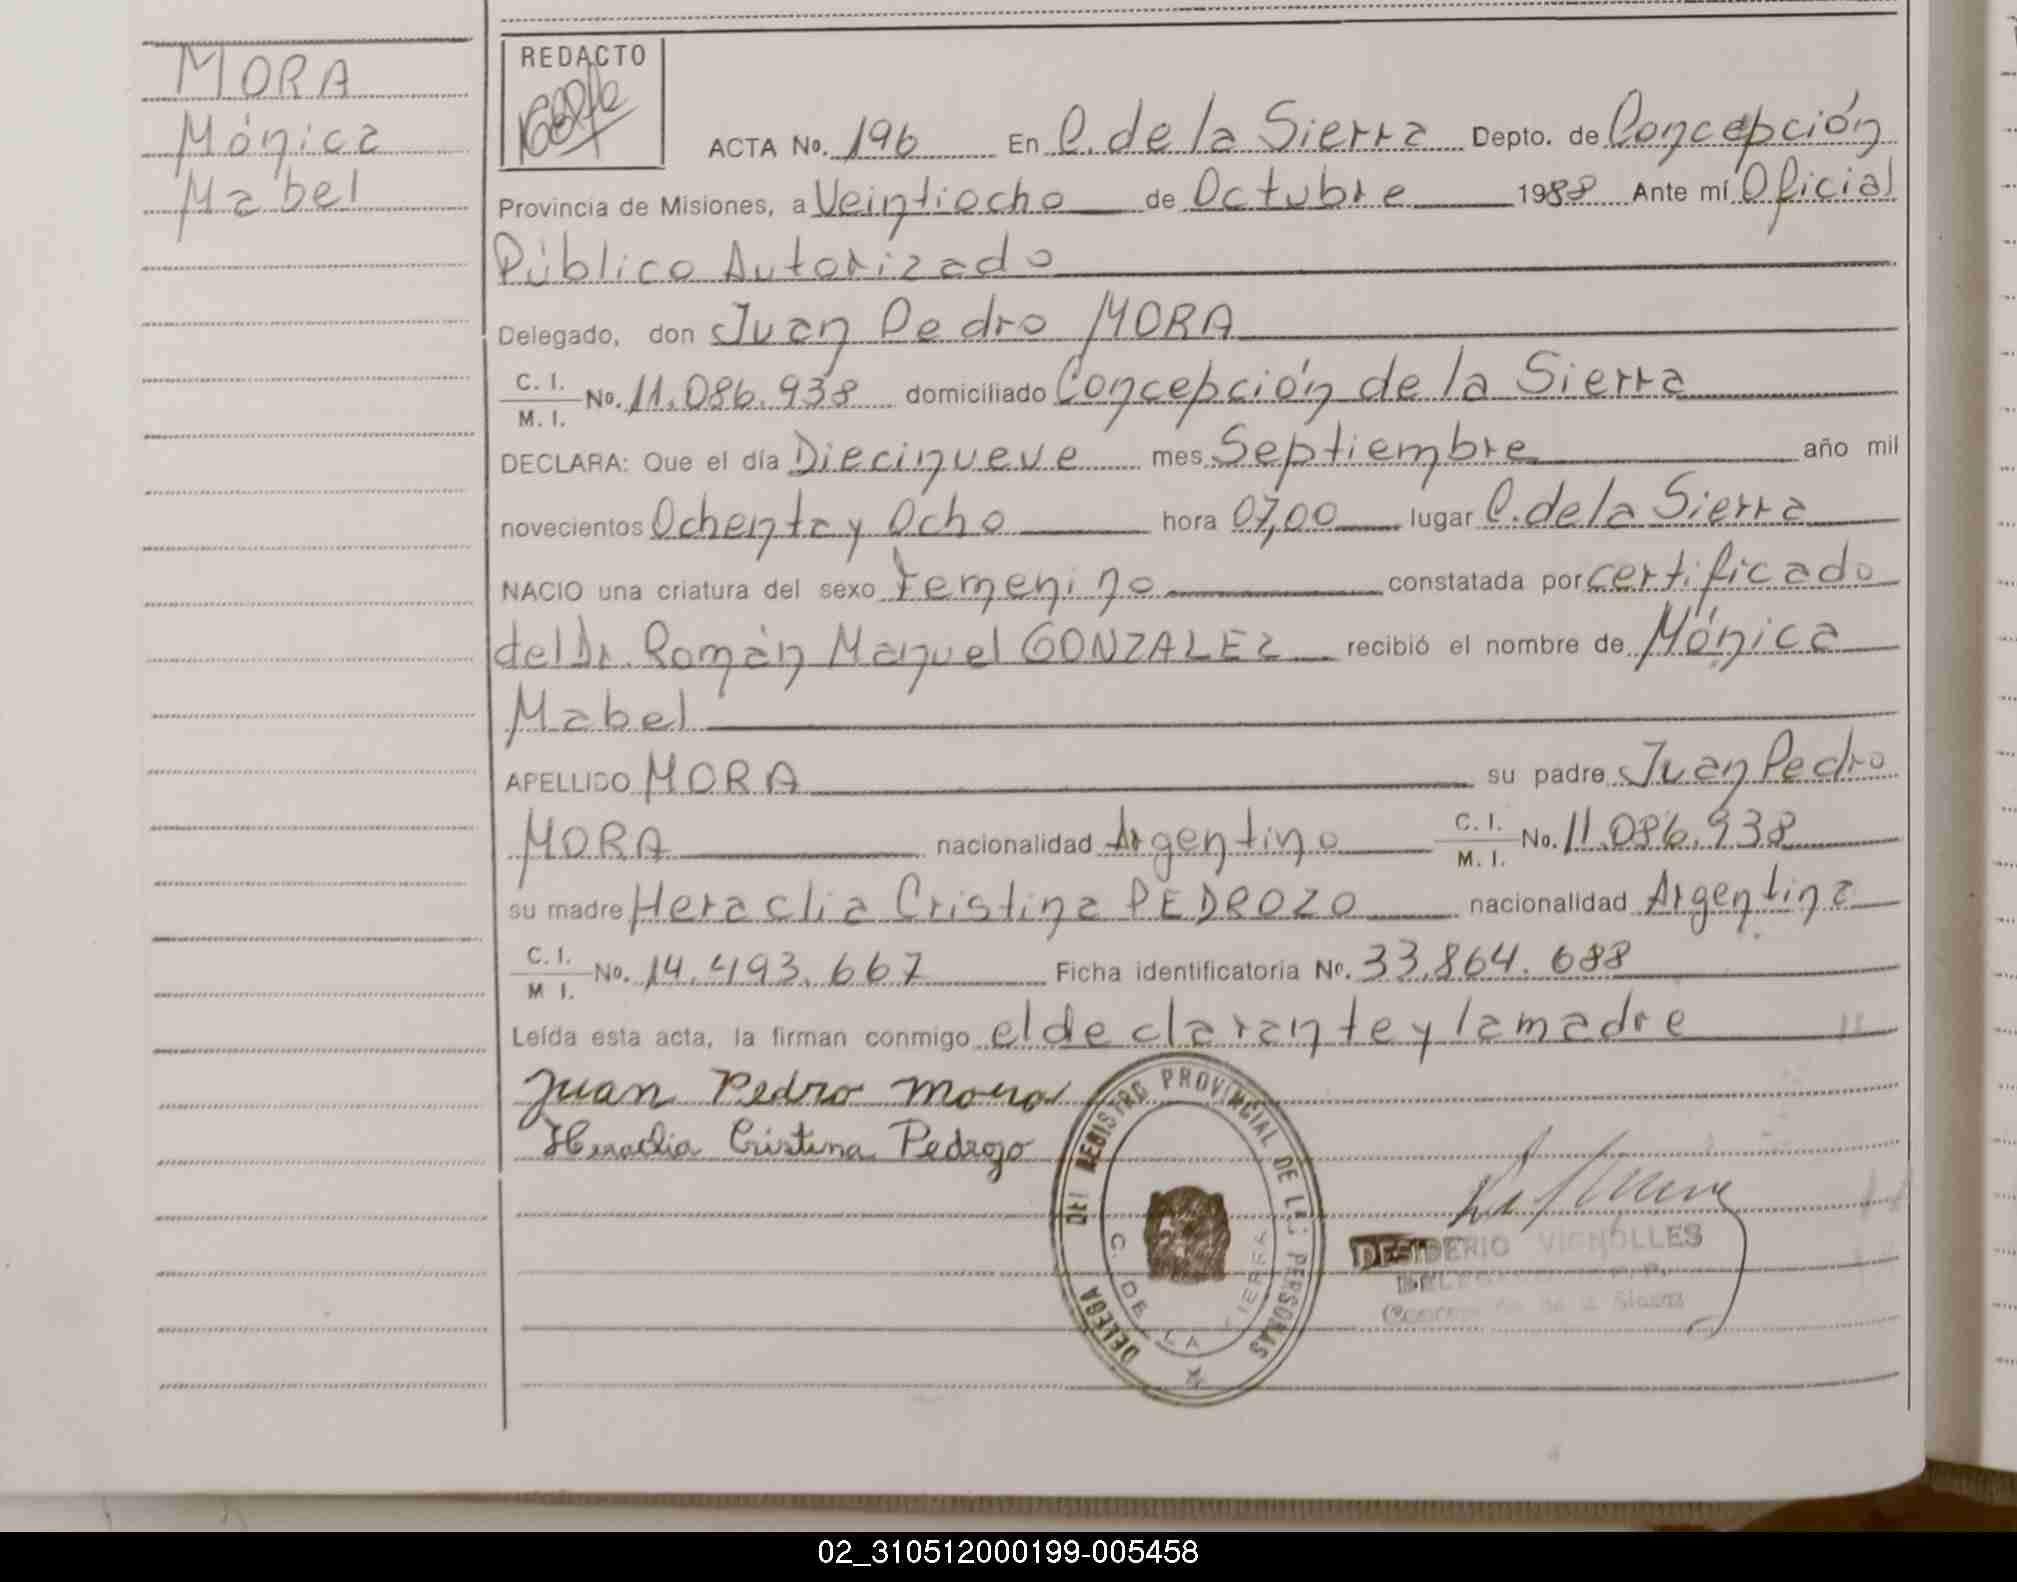 MORA
Mónica
Mabel
REDACTO
ACTA No. 196 En C. de la Sierra Depto. de Concepción
Provincia de Misiones, a Veintiocho de Octubre 1988 Ante mí Oficial
Público Autorizado
Delegado, don Juan Pedro MORA
C. I.
M. I. No. 11.086.938 domiciliado Concepción de la Sierra
DECLARA: Que el día Diecinueve mes Septiembre año mil
novecientos Ochenta y Ocho hora 07,00 lugar C. de la Sierra
NACIO una criatura del sexo Femenino constatada por certificado
del Dr. Román Manuel GONZALEZ recibió el nombre de Mónica
Mabel
APELLIDO MORA su padre Juan Pedro
MORA nacionalidad Argentino C. I. M. I. No. 11.086.938
su madre Heraclia Cristina PEDROZO nacionalidad Argentina
C. I.
M I. No. 14.493.667 Ficha identificatoria No. 33.864.688
Leída esta acta, la firman conmigo el declarante y la madre
Juan Pedro Mora
Heraclia Cristina Pedrozo
DELEGA DEL REGISTRO PROVINCIAL DE LAS PERSONAS
C. DE LA SIERRA
DESIDERIO VIGNOLLES
02_310512000199-005458